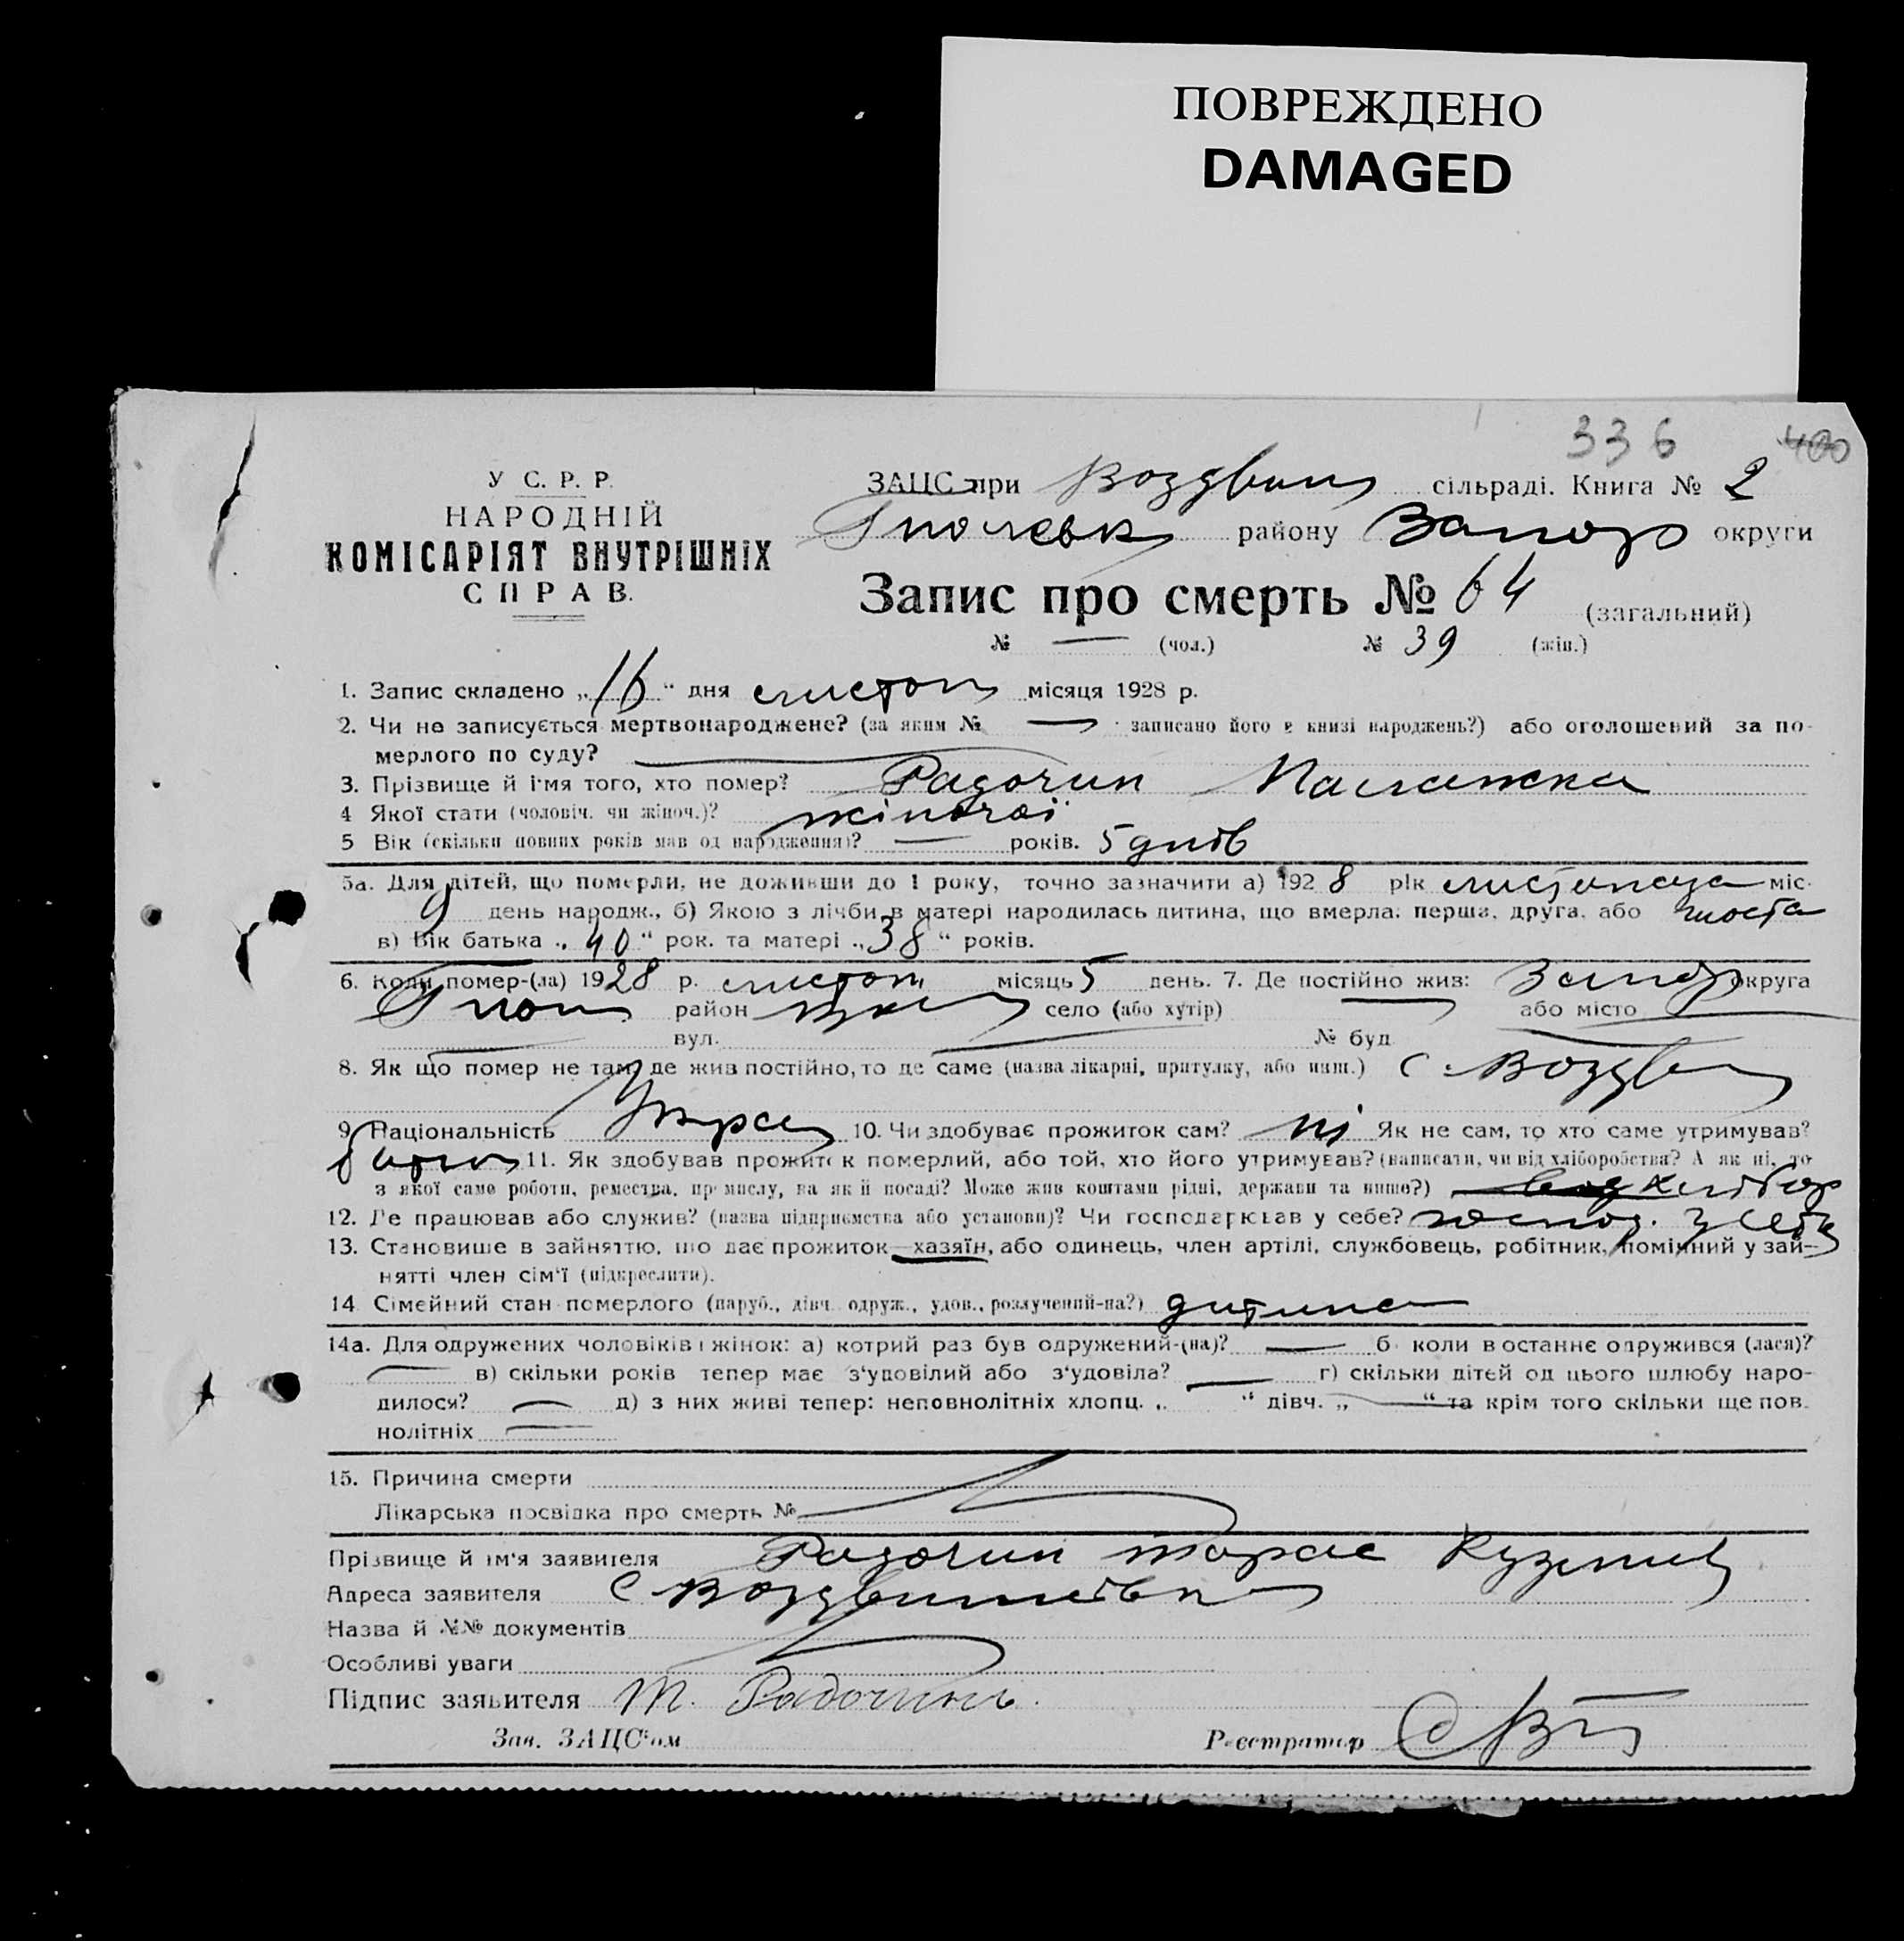 ПОВРЕЖДЕНО
DAMAGED
336 400
У С. Р. Р.
НАРОДНІЙ
КОМІСАРІЯТ ВНУТРІШНІХ
СПРАВ.
ЗАЦС при Воздвиж сільраді. Книга № 2
району Запор округи
Запис про смерть № 64 (загальний)
№ — (чол.) № 39 (жін.)
1. Запис складено „16“ дня листоп місяця 1928 р.
2. Чи не записується мертвонароджене? (за яким № — записано його в книзі народжень?) або оголошений за по-
мерлого по суду? —
3. Прізвище й ім'я того, хто помер? Радочин Палажка
4 Якої стати (чоловіч. чи жіноч.)? жіночої
5 Вік (скільки повних років мав од народження)? — років. 5 днів
5а. Для дітей, що померли, не доживши до 1 року, точно зазначити а) 1928 рік листопада міс.
9 день народж., б) Якою з лічби в матері народилась дитина, що вмерла: перша, друга, або шоста
в) Вік батька „40“ рок. та матері „38“ років.
6. Коли помер-(ла) 1928 р. листоп місяць 5 день. 7. Де постійно жив: Запор округа
район село (або хутір) — або місто —
— вул. — № буд —
8. Як що помер не там, де жив постійно, то де саме (назва лікарні, притулку, або инш.) с. Воздв
9. Національність Укра 10. Чи здобуває прожиток сам? ні Як не сам, то хто саме утримував?
батько 11. Як здобував прожиток померлий, або той, хто його утримував? (написати, чи від хліборобства? А як ні, то
з якої саме роботи, ремества, промислу, на якій посаді? Може жив коштами рідні, держави та инше?) від хлібор
12. Де працював або служив? (назва підприємства або установи)? Чи господарював у себе? господ. у себе
13. Становище в зайняттю, що дає прожиток хазяїн, або одинець, член артілі, службовець, робітник, помічний у зай-
нятті член сім'ї (підкреслити).
14 Сімейний стан померлого (паруб., дівч. одруж., удов., розлучений-на?) дитина
14а. Для одружених чоловіків і жінок: а) котрий раз був одружений-(на)? — б коли в останнє одружився (лася)?
— в) скільки років тепер має з'удовілий або з'удовіла? — г) скільки дітей од цього шлюбу наро-
дилося? — д) з них живі тепер: неповнолітніх хлопц. „ “ дівч. „ — “ та крім того скільки ще пов-
нолітніх —
15. Причина смерти
Лікарська посвідка про смерть №
Прізвище й ім'я заявителя Радочин Тарас Кузьмич
Адреса заявителя с Воздвижевка
Назва й №№ документів
Особливі уваги
Підпис заявителя Т. Радочинь.
Зав. ЗАЦС'ом Реєстратор